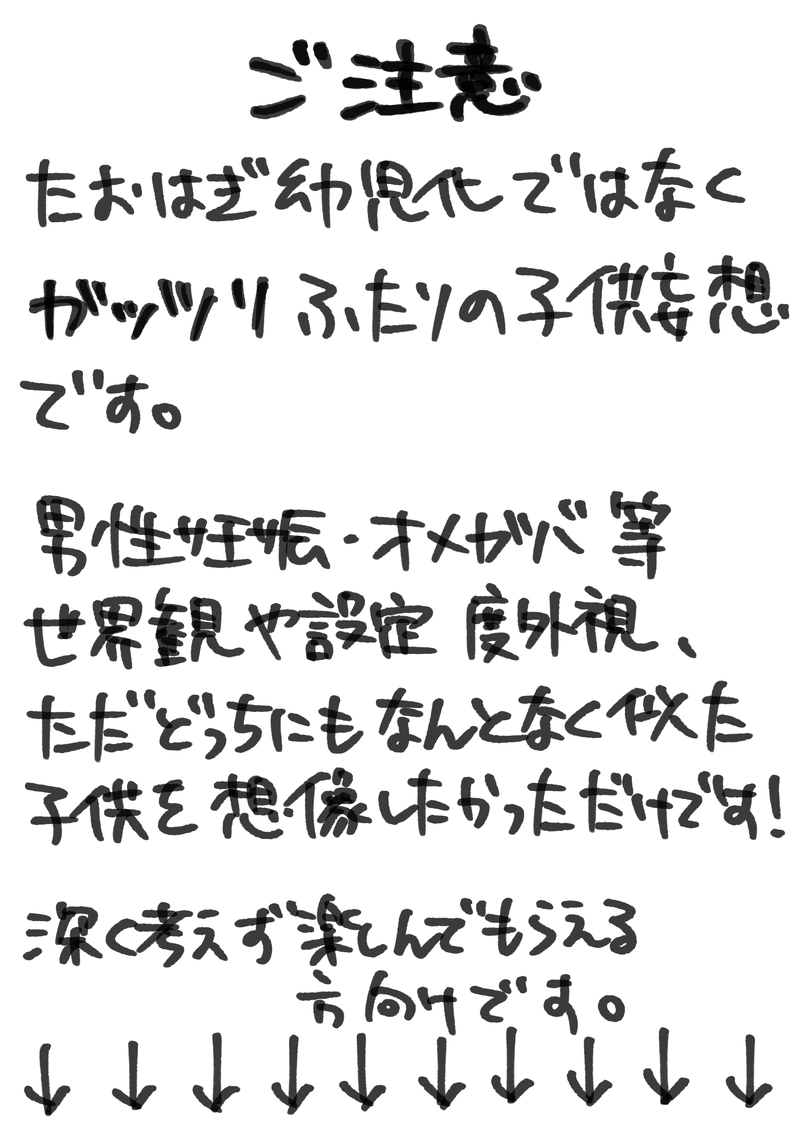 ご注意
たおはぎ幼児化ではなく
ガッツリふたりの子供妄想
です。
男性妊娠・オメガバ等
世界観や設定度外視、
ただどっちにもなんとなく似た
子供を想像したかっただけです!
深く考えず楽しんでもらえる
方向けです。
↓ ↓ ↓ ↓ ↓ ↓ ↓ ↓ ↓ ↓